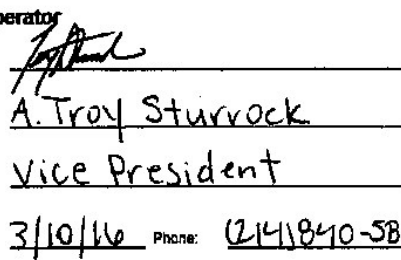 perator
A. Troy Sturrock
Vice President
3/10/16 Phone: (214)840-5B